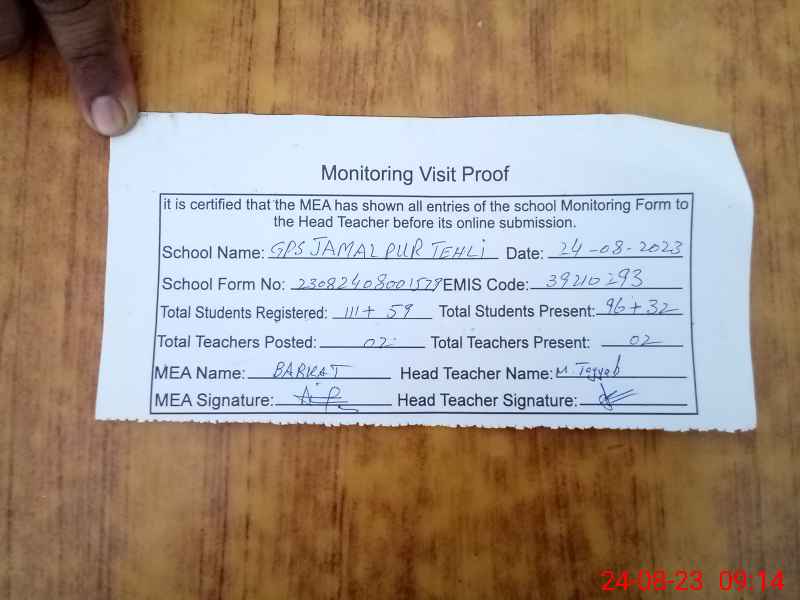 Monitoring Visit Proof
it is certified that the MEA has shown all entries of the school Monitoring Form to
the Head Teacher before its online submission.
School Name: GPS JAMAL PUR TEHLI Date: 24-08-2023
School Form No: 23082408001579 EMIS Code: 39210293
Total Students Registered: 111+ 59 Total Students Present: 96+32
Total Teachers Posted: 02 Total Teachers Present: 02
MEA Name: BARKAT Head Teacher Name: M. Tayyab
MEA Signature: Head Teacher Signature:
24-08-23 09:14